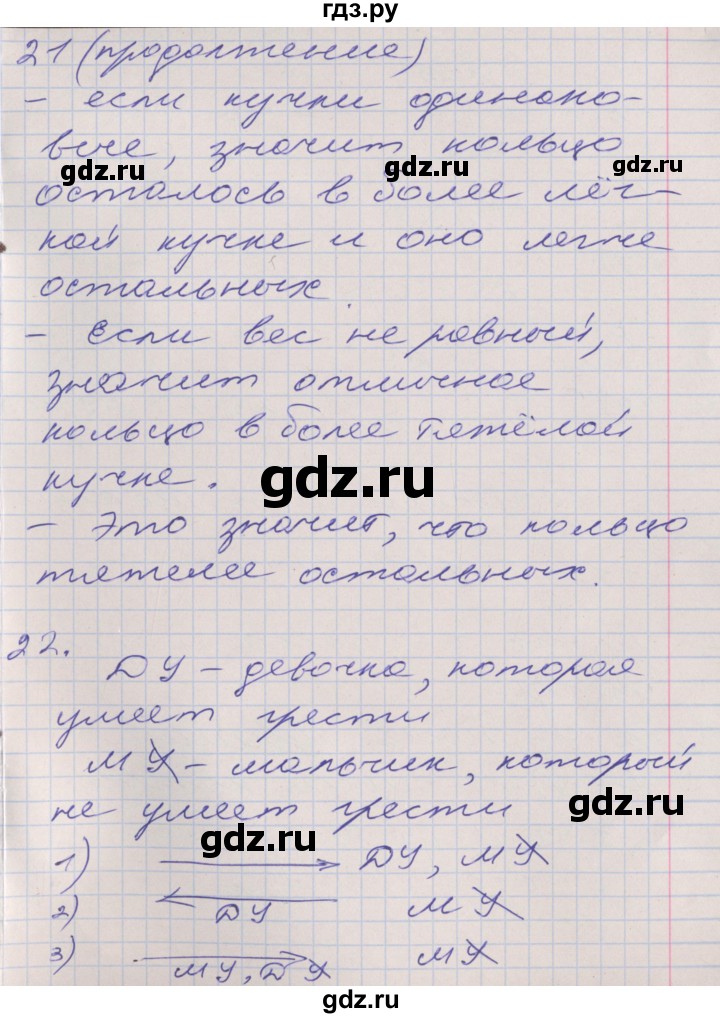 гдз.ру
21 (продолжение)
- если кучки одинако-
вые, значит кольцо
gdz.ru gdz.ru gdz.ru
осталось в более лёг-
кой кучке и оно легче
остальных.
- Если вес не равный,
значит отличное
кольцо в более тяжёлой
кучке.
gdz.ru
- Это значит, что кольцо
тяжелее остальных.
22.
ДУ - девочка, которая
умеет грести
МУ - мальчик, который
не умеет грести
gdz.ru
gdz.ru
1) → ДУ, МУ
2) ← ДУ МУ
3) → МУ, ДУ МУ
gdz.ru